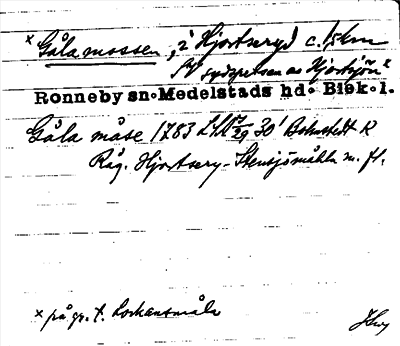 x Gåla mossen, i Hjortseryd c. 1,5 km
SV sydspetsen av Hjortsjön x
Ronneby sn. Medelstads hd. Blek. l.
Gåla måse 1783 30' Bohnstedt K
Råg. Hjortsery-Stensjömåhla m. fl.
x på gr. t. Lockansmåla